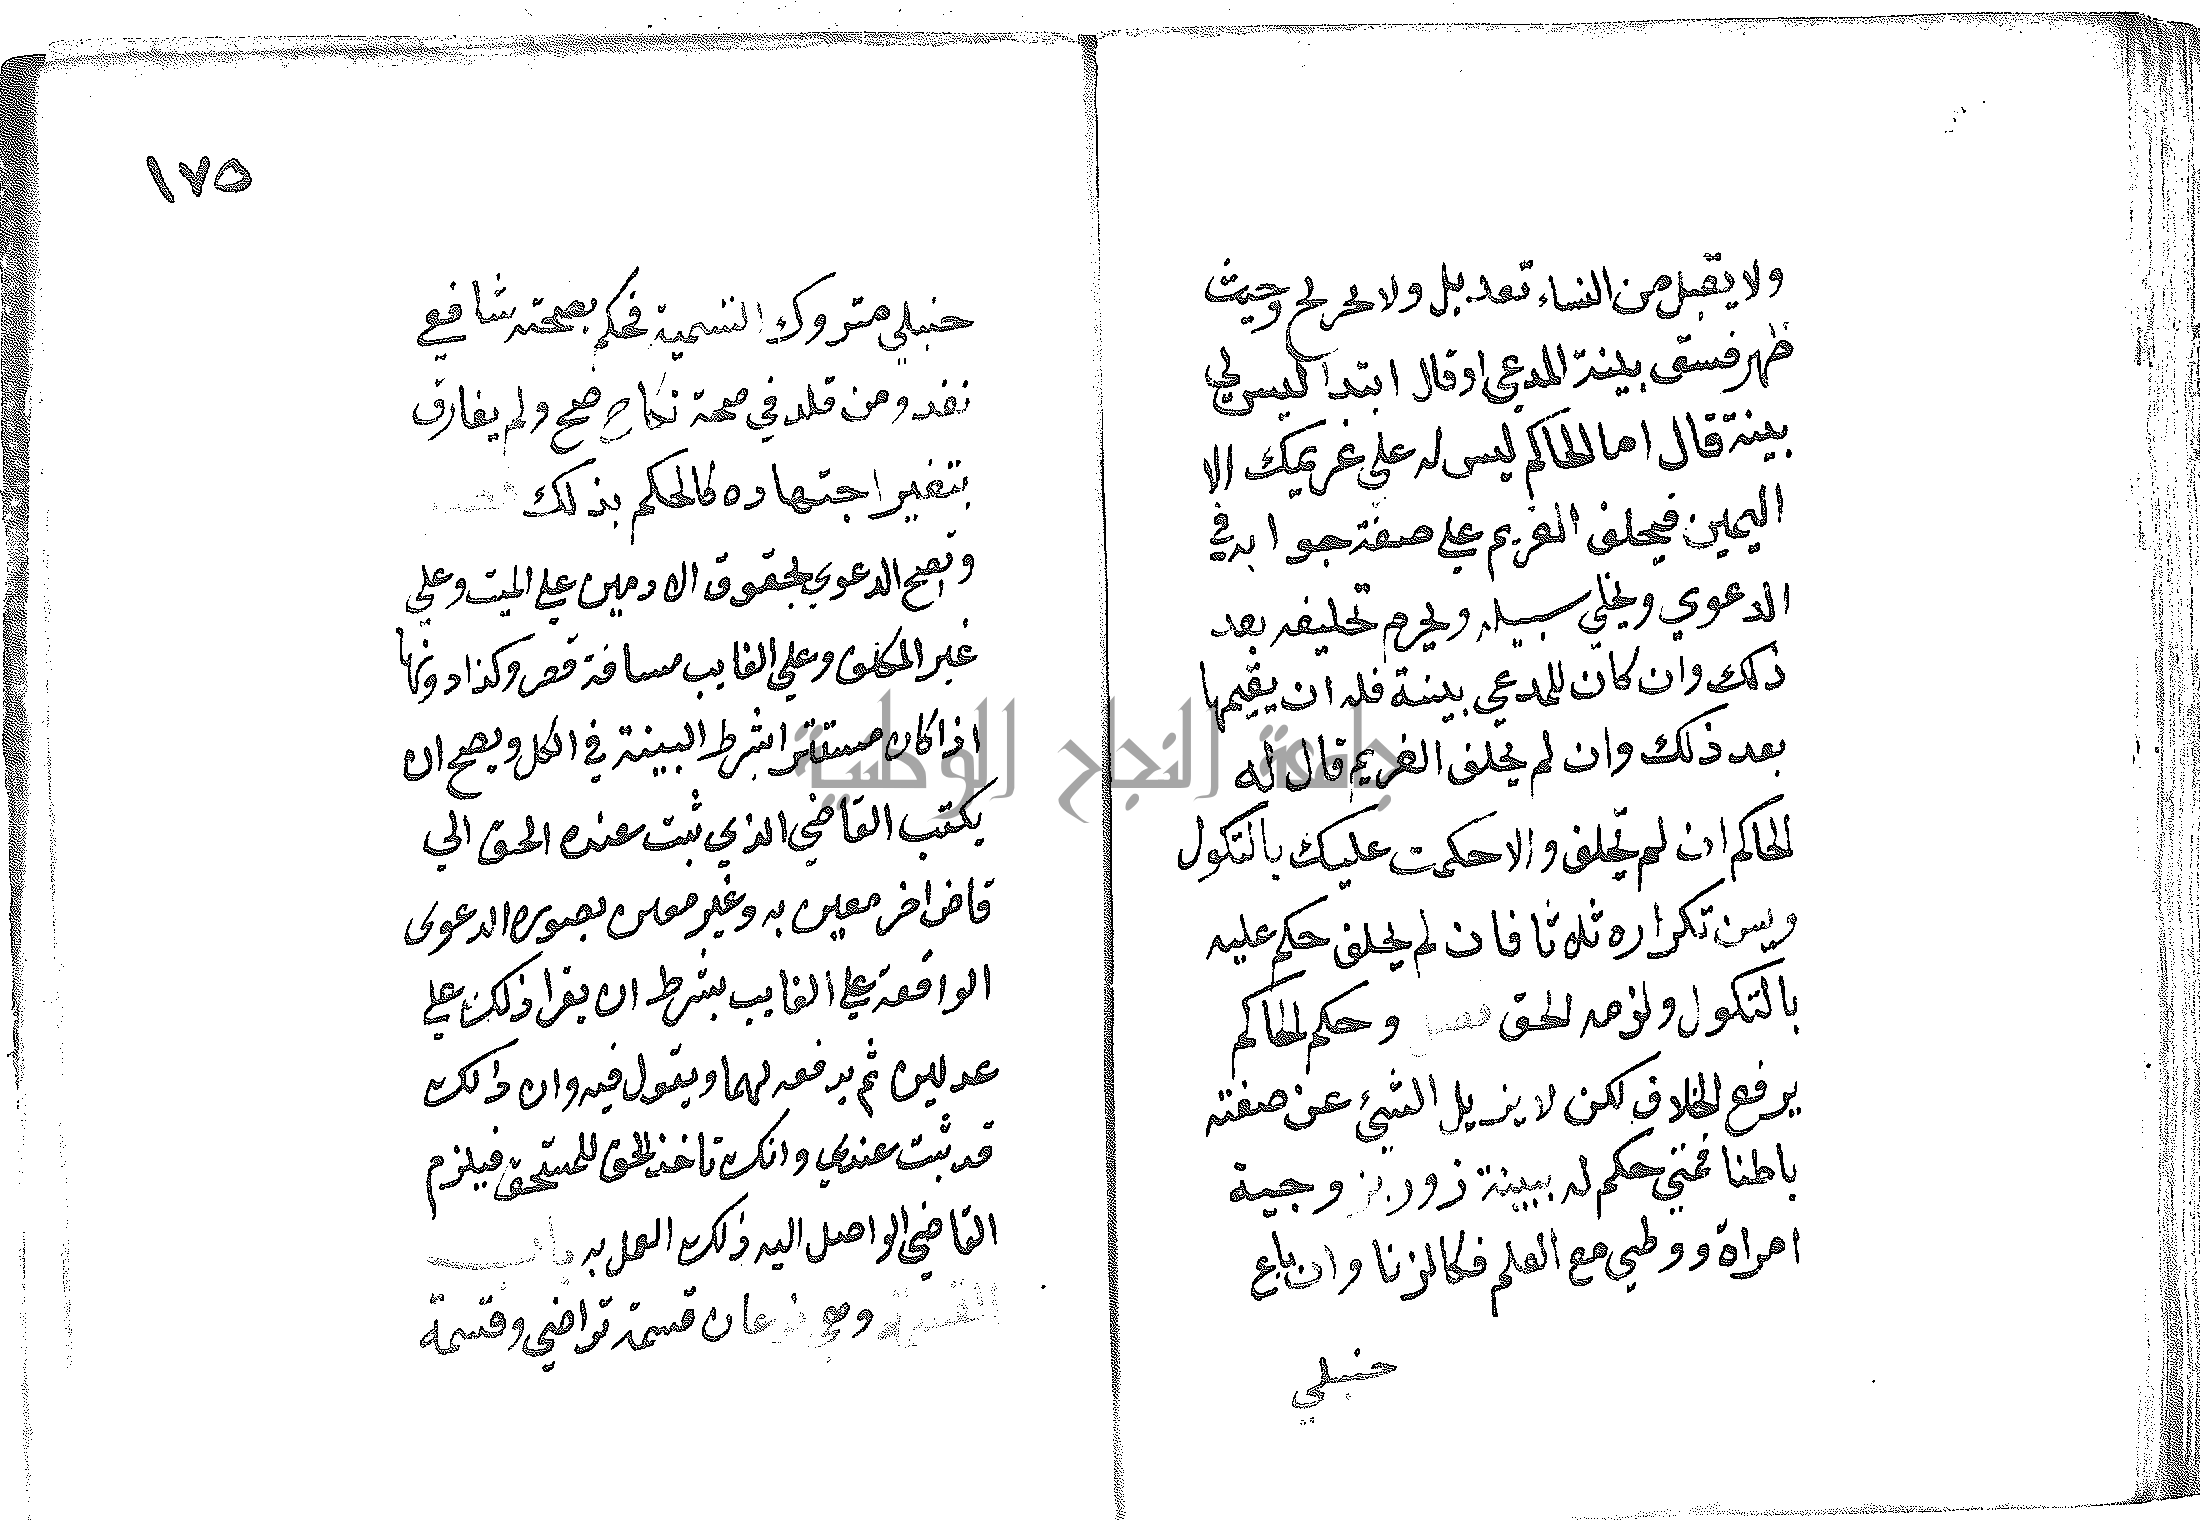 ولا يقبل من النساء تعديل ولا تجريح وحيث
ظهر فسق بينة المدعي او قال ابتدا ليس لي
بينة قال له الحاكم ليس له علي غريمك الا
اليمين فيحلف الغريم علي صفة جوابه في
الدعوي ويخلي سبيله ويحرم تحليفه بعد
ذلك وان كان للمدعي بينة فله ان يقيمها
بعد ذلك وان لم يحلف الغريم قال له
الحاكم ان لم تحلف والا حكمت عليك بالنكول
ويسن تكراره ثلاثا فان لم يحلف حكم عليه
بالنكول ولزمه الحق فصل وحكم الحاكم
يرفع الخلاف لكن لا يزيل الشئ عن صفته
باطنا فمتي حكم له ببينة زور بزوجية
امراة ووطي مع العلم فكالزنا وان باع
حنبلي
١٧٥
حنبلي متروك التسمية فحكم بصحته شافعي
نفد ومن قلد في صحة نكاح صح ولم يفارق
بتغير اجتهاده كالحكم بذلك فصل
وتصح الدعوي بحقوق الادميين علي الميت وعلي
غير المكلف وعلي الغايب مسافة قصر وكذا دونها
اذا كان مستترا بشرط البينة في الكل ويصح ان
يكتب القاضي الذي ثبت عنده الحق الي
قاض اخر معين به وغير معين بصورة الدعوى
الواقعة علي الغايب بشرط ان يقرا ذلك علي
عدلين ثم يدفعه لهما ويقول فيه وان ذالك
قد ثبت عندي وانك تاخذ الحق للمستحق فيلزم
القاضي الواصل اليه ذلك العمل به باب
القسمة وهي نوعان قسمة تراضي وقسمة
جامعة النجاح الوطنية